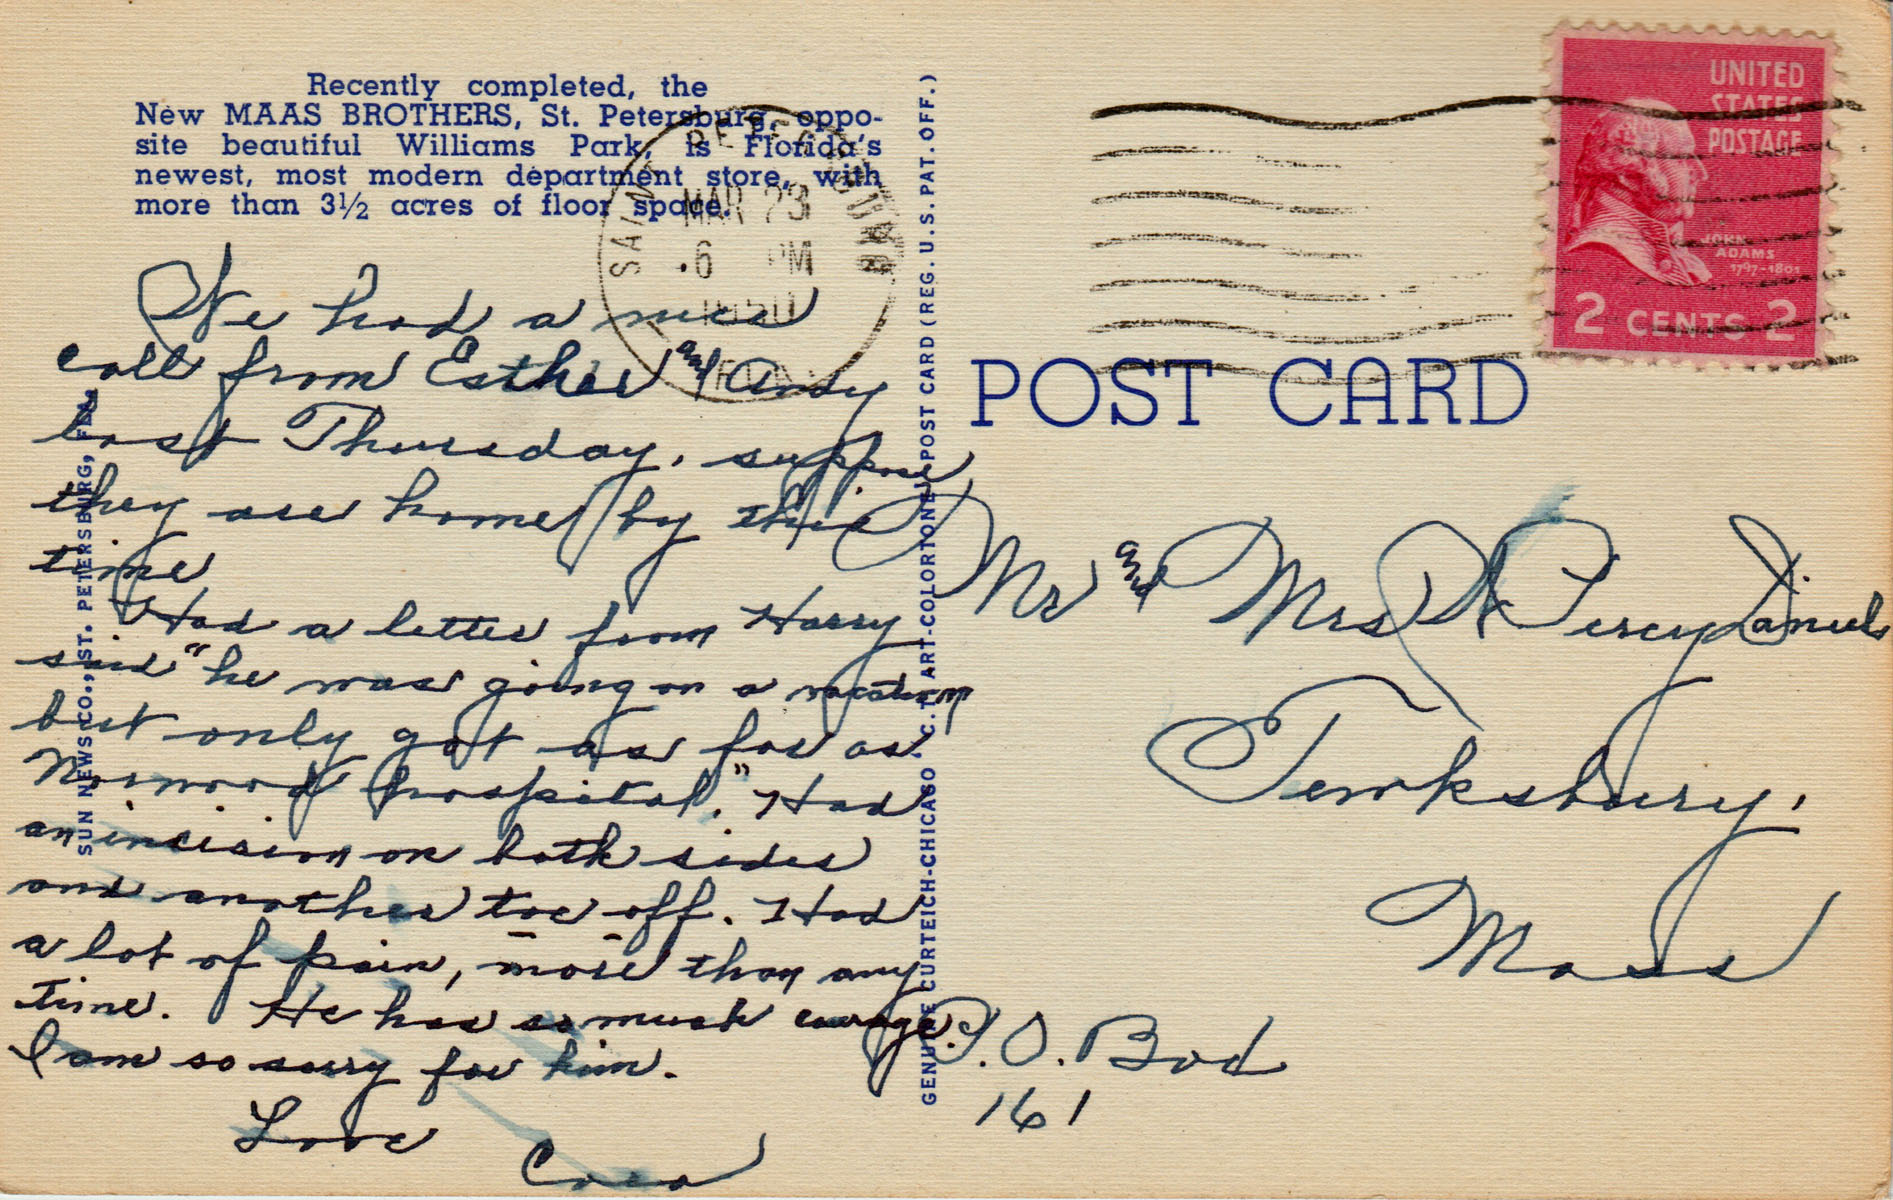 Recently completed, the
New MAAS BROTHERS, St. Petersburg, oppo-
site beautiful Williams Park, is Florida's
newest, most modern department store, with
more than 3½ acres of floor space.
SAINT PETERSBURG
MAR 23
6 PM
1950
FLA.
UNITED
STATES
POSTAGE
JOHN
ADAMS
1797-1801
2 CENTS 2
POST CARD
We had a nice
call from Esther and Andy
last Thursday, suppose
they are home by this
time
Had a letter from Harry
said "he was going on a vacation
but only got as far as
Norwood hospital." Had
an incision on both sides
and another toe off. Had
a lot of pain, more than any
time. He has so much courage.
I am so sorry for him.
Love
Cora
Mr and Mrs Percy Daniels
Tewksbury,
Mass
P.O. Box
161
SUN NEWS CO., ST. PETERSBURG, FLA.
GENUINE CURTEICH-CHICAGO "C.T. ART-COLORTONE" POST CARD (REG. U.S. PAT. OFF.)